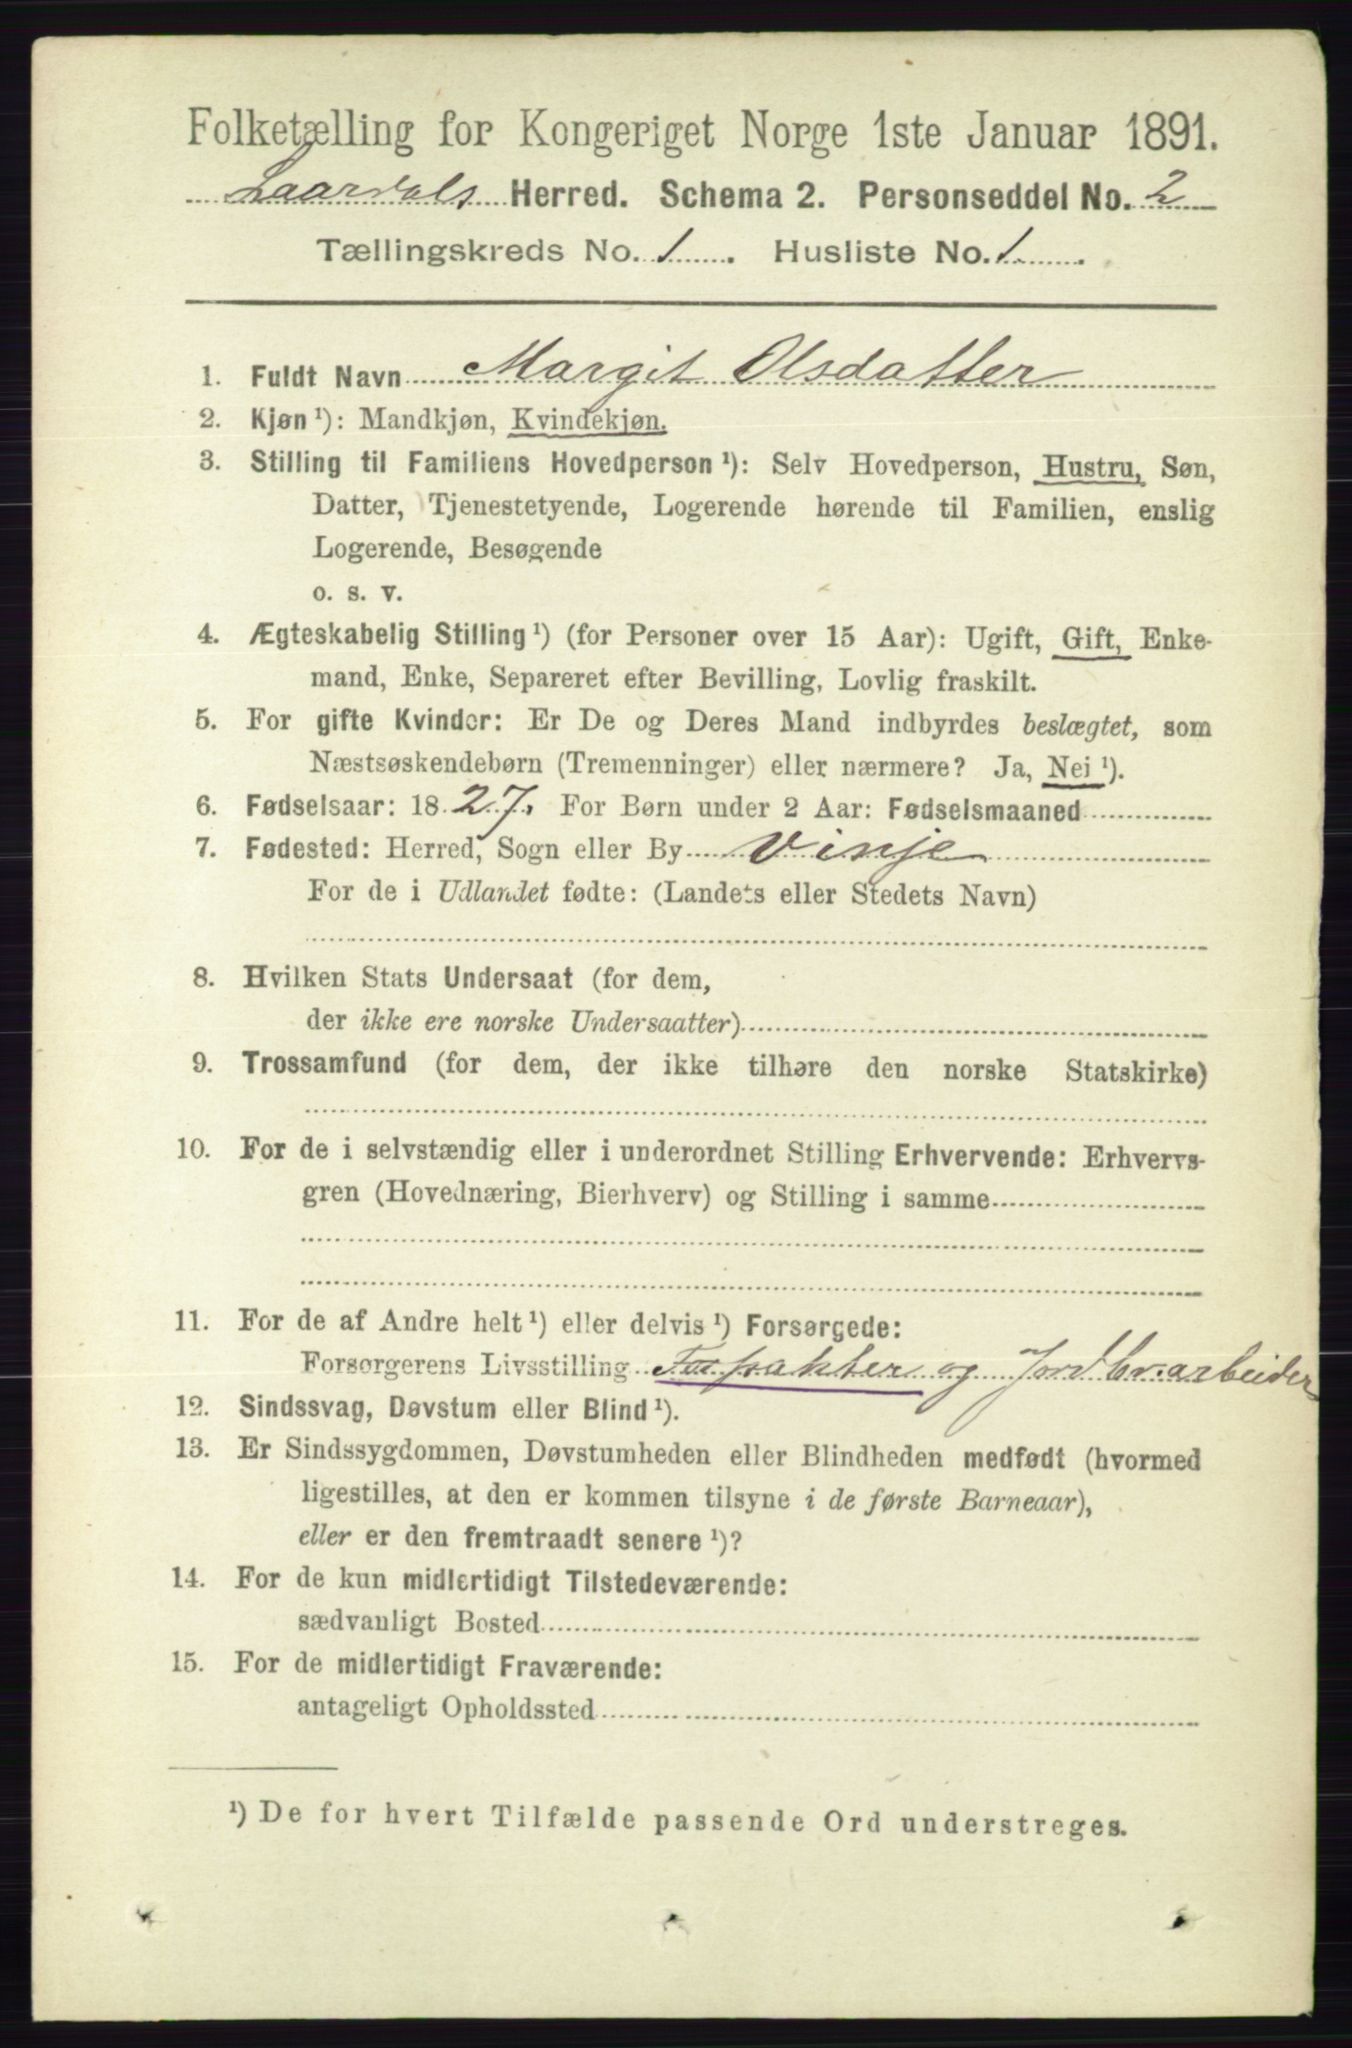 Folketælling for Kongeriget Norge 1ste Januar 1891.
Laardals Herred. Schema 2. Personseddel No. 2
Tællingskreds No. 1. Husliste No. 1.
1. Fuldt Navn Margit Olsdatter
2. Kjøn ¹): Mandkjøn, Kvindekjøn.
3. Stilling til Familiens Hovedperson ¹): Selv Hovedperson, Hustru, Søn,
Datter, Tjenestetyende, Logerende hørende til Familien, enslig
Logerende, Besøgende
o. s. v.
4. Ægteskabelig Stilling ¹) (for Personer over 15 Aar): Ugift, Gift, Enke-
mand, Enke, Separeret efter Bevilling, Lovlig fraskilt.
5. For gifte Kvinder: Er De og Deres Mand indbyrdes beslægtet, som
Næstsøskendebørn (Tremenninger) eller nærmere? Ja, Nei ¹).
6. Fødselsaar: 1827. For Børn under 2 Aar: Fødselsmaaned
7. Fødested: Herred, Sogn eller By Vinje
For de i Udlandet fødte: (Landets eller Stedets Navn)
8. Hvilken Stats Undersaat (for dem,
der ikke ere norske Undersaatter)
9. Trossamfund (for dem, der ikke tilhøre den norske Statskirke)
10. For de i selvstændig eller i underordnet Stilling Erhvervende: Erhvervs-
gren (Hovednæring, Bierhverv) og Stilling i samme
11. For de af Andre helt ¹) eller delvis ¹) Forsørgede:
Forsørgerens Livsstilling Forpakter og Jordbr.arbeider
12. Sindssvag, Døvstum eller Blind ¹).
13. Er Sindssygdommen, Døvstumheden eller Blindheden medfødt (hvormed
ligestilles, at den er kommen tilsyne i de første Barneaar),
eller er den fremtraadt senere ¹)?
14. For de kun midlertidigt Tilstedeværende:
sædvanligt Bosted
15. For de midlertidigt Fraværende:
antageligt Opholdssted
¹) De for hvert Tilfælde passende Ord understreges.